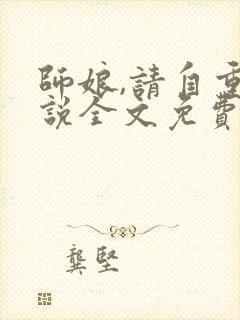 師娘,請自重
説全文免費
龔堅